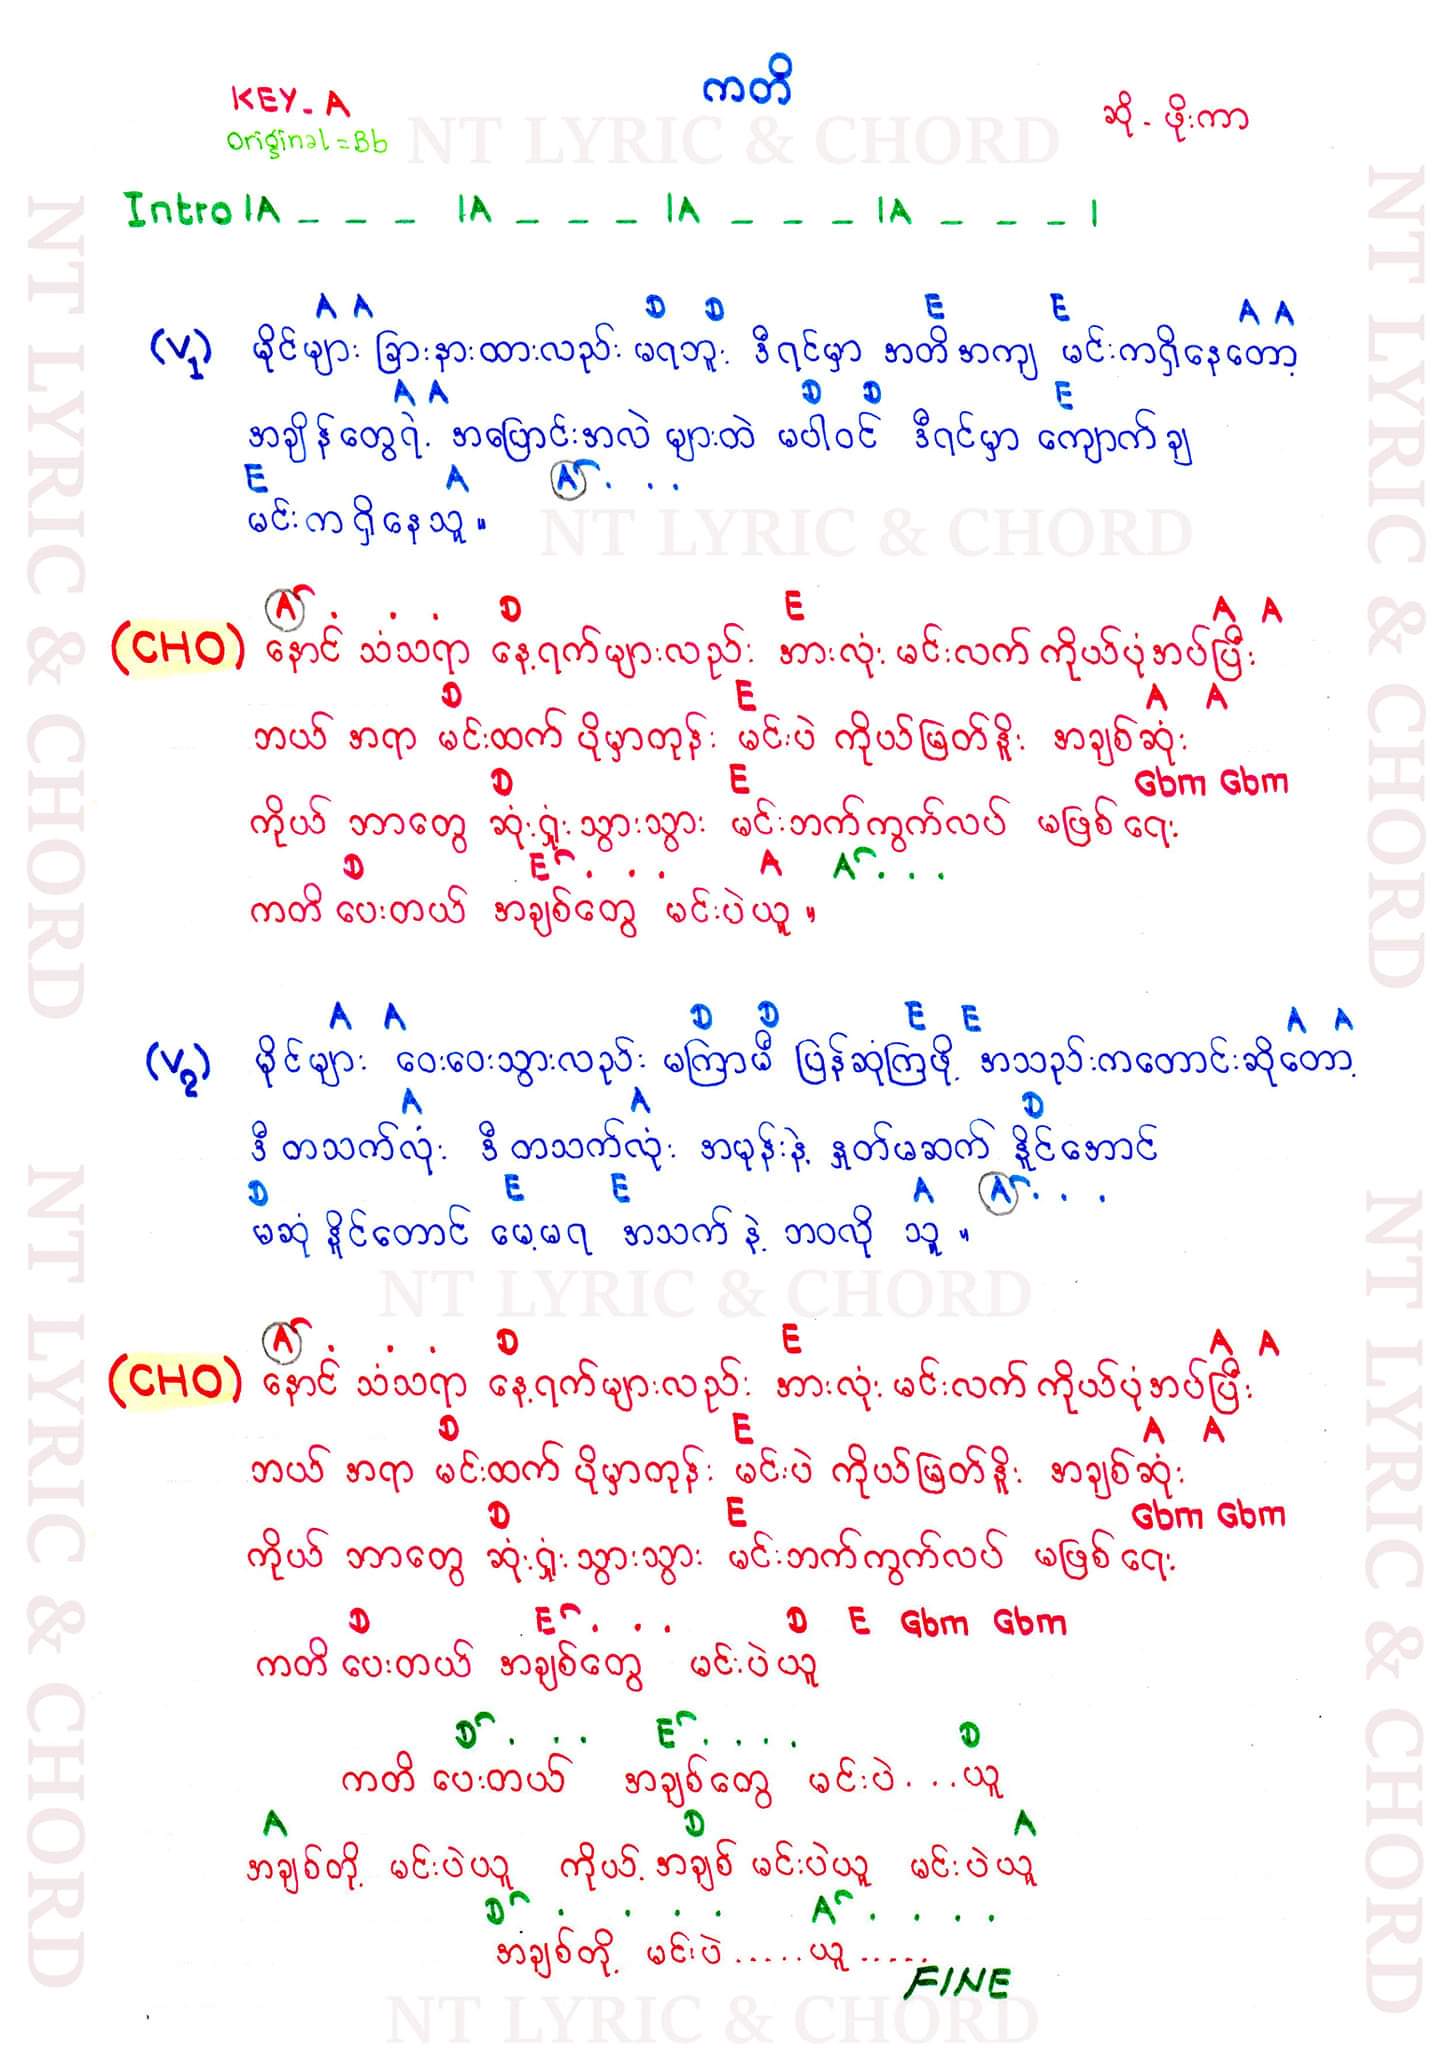 ကတိ
KEY - A
Original = Bb
ဆို - ဖိုးကာ
NT LYRIC & CHORD
Intro |A _ _ _ |A _ _ _ |A _ _ _ |A _ _ _ |
A A D D E E A A
(V1) မိုင်များ ခြားနားထားလည်း မရဘူး ဒီရင်မှာ အတိအကျ မင်းကရှိနေတော့
A A D D E
အချိန်တွေရဲ့ အပြောင်းအလဲ များထဲ မပါဝင် ဒီရင်မှာ ကျောက်ချ
E A A . . .
မင်းကရှိနေသူ။
NT LYRIC & CHORD
A . . . D E A A
(CHO) နောင် သံသရာ နေ့ရက်များလည်း အားလုံး မင်းလက် ကိုယ်ပုံအပ်ပြီး
D E A A
ဘယ် အရာ မင်းထက် ပိုမှာတုန်း မင်းပဲ ကိုယ်မြတ်နိုး အချစ်ဆုံး
D E Gbm Gbm
ကိုယ် ဘာတွေ ဆုံးရှုံးသွားသွား မင်းဘက်ကွက်လပ် မဖြစ်ရေး
D E . . . A A . . .
ကတိ ပေးတယ် အချစ်တွေ မင်းပဲယူ။
A A D D E E A A
(V2) မိုင်များ ဝေးဝေးသွားလည်း မကြာမီ ပြန်ဆုံကြဖို့ အသည်းကတောင်းဆိုတော့
A A D
ဒီ တသက်လုံး ဒီ တသက်လုံး အမုန်းနဲ့ နှုတ်မဆက် နိုင်အောင်
D E E A A . . .
မဆုံ နိုင်တောင် မေ့မရ အသက်နဲ့ ဘဝလို သူ။
NT LYRIC & CHORD
A . . . D E A A
(CHO) နောင် သံသရာ နေ့ရက်များလည်း အားလုံး မင်းလက် ကိုယ်ပုံအပ်ပြီး
D E A A
ဘယ် အရာ မင်းထက် ပိုမှာတုန်း မင်းပဲ ကိုယ်မြတ်နိုး အချစ်ဆုံး
D E Gbm Gbm
ကိုယ် ဘာတွေ ဆုံးရှုံးသွားသွား မင်းဘက်ကွက်လပ် မဖြစ်ရေး
D E . . . D E Gbm Gbm
ကတိ ပေးတယ် အချစ်တွေ မင်းပဲယူ
D . . . E . . . . D
ကတိ ပေးတယ် အချစ်တွေ မင်းပဲ . . . ယူ
A D A
အချစ်တို့ မင်းပဲယူ ကိုယ့် အချစ် မင်းပဲယူ မင်းပဲယူ
D . . . . A . . . .
အချစ်တို့ မင်းပဲ ..... ယူ .....
FINE
NT LYRIC & CHORD
NT LYRIC & CHORD
NT LYRIC & CHORD
NT LYRIC & CHORD
NT LYRIC & CHORD